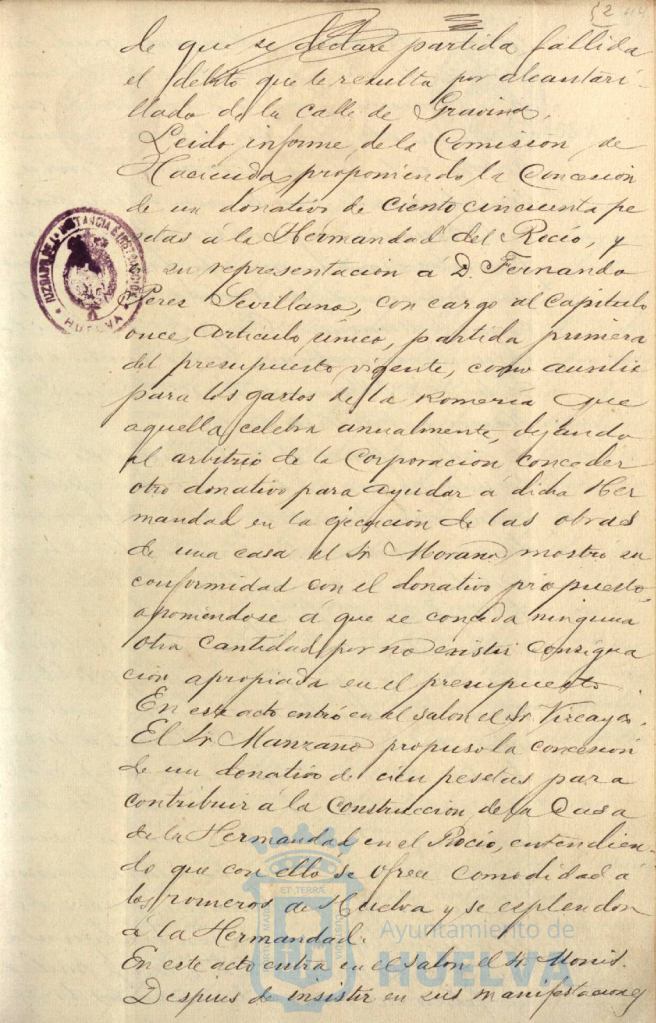 de que se declare partida fallida
el debito que le resulta por alcantari-
llado de la calle de Gravina.
Leido informe de la Comision de
Hacienda proponiendo la Concesion
de un donativo de ciento cincuenta pe
setas á la Hermandad del Rocio, y
su representacion á D. Fernando
Perez Sevillano, con cargo al Capitulo
once, Articulo unico, partida primera
del presupuesto vigente, como auxilio
para los gastos de la Romeria que
aquella celebra anualmente, dejando
al arbitrio de la Corporacion conceder
otro donativo para ayudar á dicha Her
mandad en la ejecucion de las obras
de una casa el Sr. Morano mostró su
conformidad con el donativo propuesto,
oponiendose á que se conceda ninguna
otra cantidad por no existir consigna
cion apropiada en el presupuesto.
En este acto entró en el salon el Sr.
El Sr. Manzano propuso la concesion
de un donativo de cien pesetas para
contribuir á la Construccion de la Casa
de la Hermandad en el Rocio, entendien-
do que con ello se ofrece comodidad á
los romeros de Huelva y se esplendor
á la Hermandad.
En este acto entra en el salon el Sr. Monis.
Despues de insistir en sus manifestaciones
HUELVA
ET TERRÆ
Ayuntamiento de
HUELVA